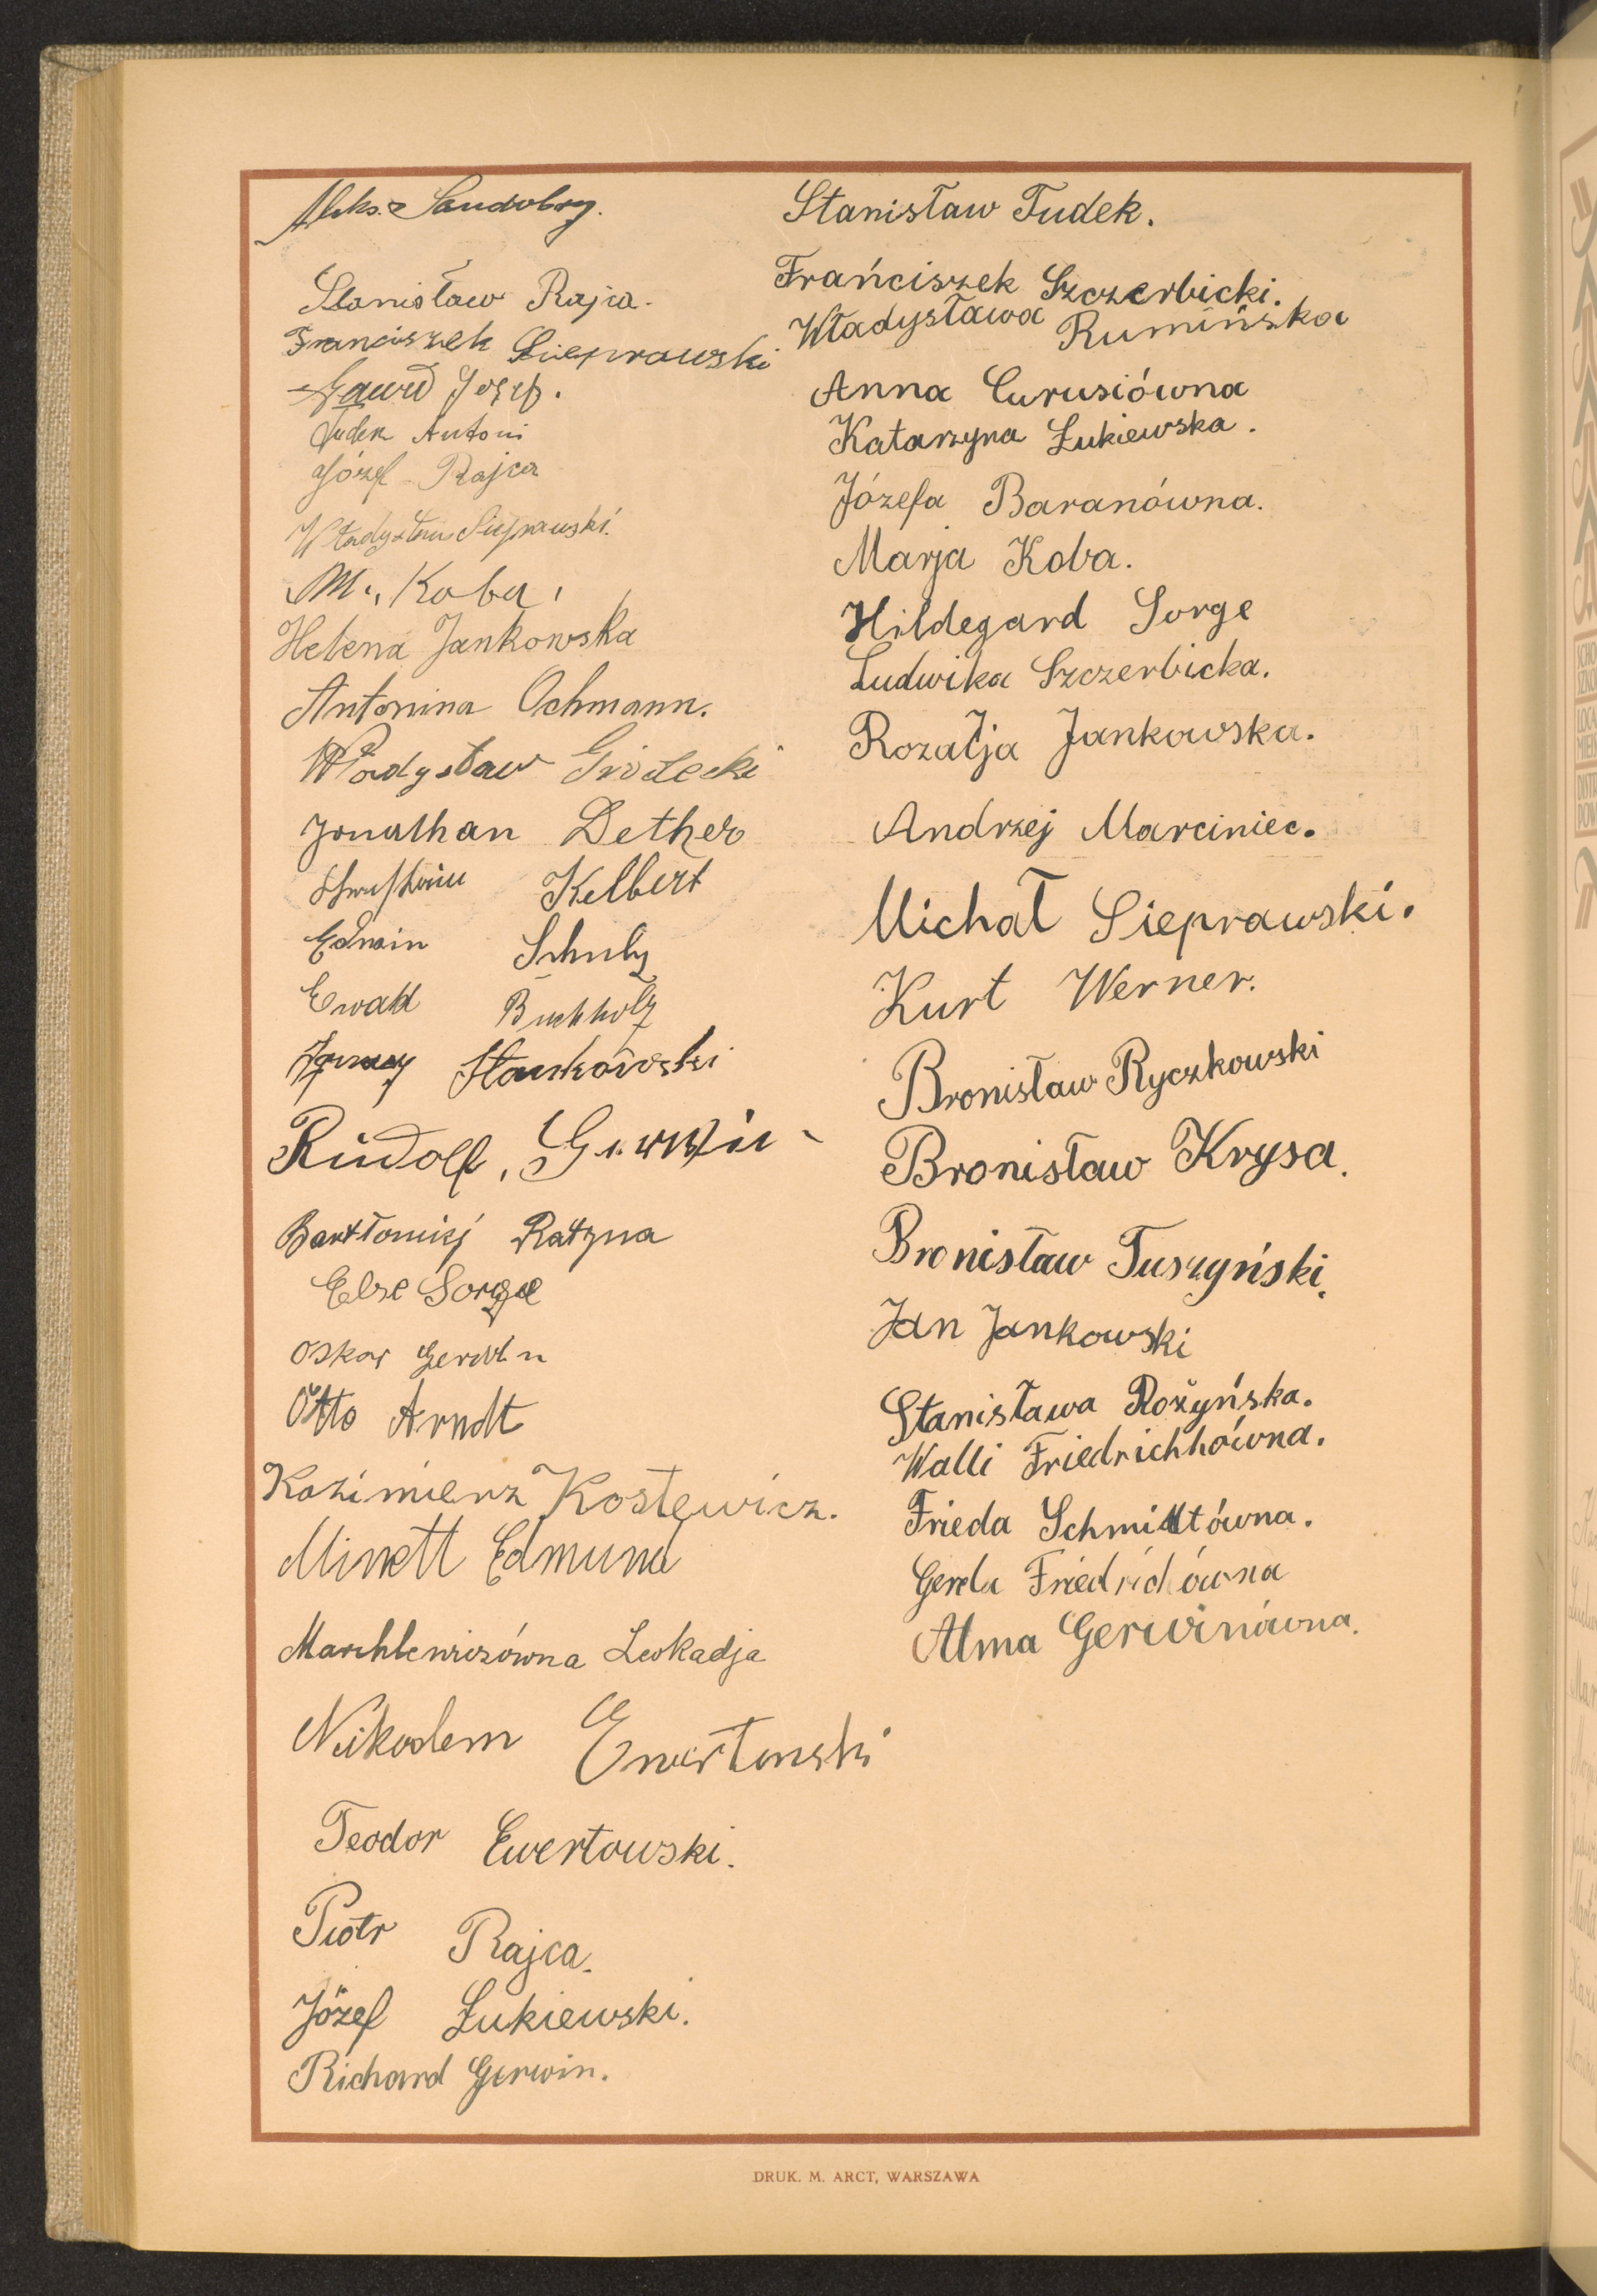 Aleks. Sandobry.
Stanisław Rajca.
Franciszek Sieprawski
Gawed Józef.
Tudek Antoni
Józef Rajca
Władysław Sieprawski.
M. Koba,
Helena Jankowska
Antonina Ochmann.
Władysław Grodecki
Jonathan Dether
Kelbert
Edwin Schulz
Ewald Buchholz
Ignacy Stankowski
Rudolf. Gerwin
Bartłomiej Ratyna
Else Sorge
Oskar Gerwin
Otto Arndt
Kazimierz Kostewicz.
Minett Edmund
Marchlewiczówna Leokadja
Nikodem Ewertowski
Teodor Ewertowski.
Piotr Rajca.
Józef Łukiewski.
Richard Gerwin.
Stanisław Tudek.
Frańciszek Szczerbicki.
Władysława Rumińska
Anna Curusiówna
Katarzyna Łukiewska.
Józefa Baranówna.
Marja Koba.
Hildegard Sorge
Ludwika Szczerbicka.
Rozalja Jankowska.
Andrzej Marciniec.
Michał Sieprawski.
Kurt Werner.
Bronisław Ryczkowski
Bronisław Krysa.
Bronisław Tuszyński.
Jan Jankowski
Stanisława Rożyńska.
Walli Friedrichhówna.
Frieda Schmidtówna.
Gerda Friedrichówna
Alma Gerwinówna.
DRUK. M. ARCT, WARSZAWA